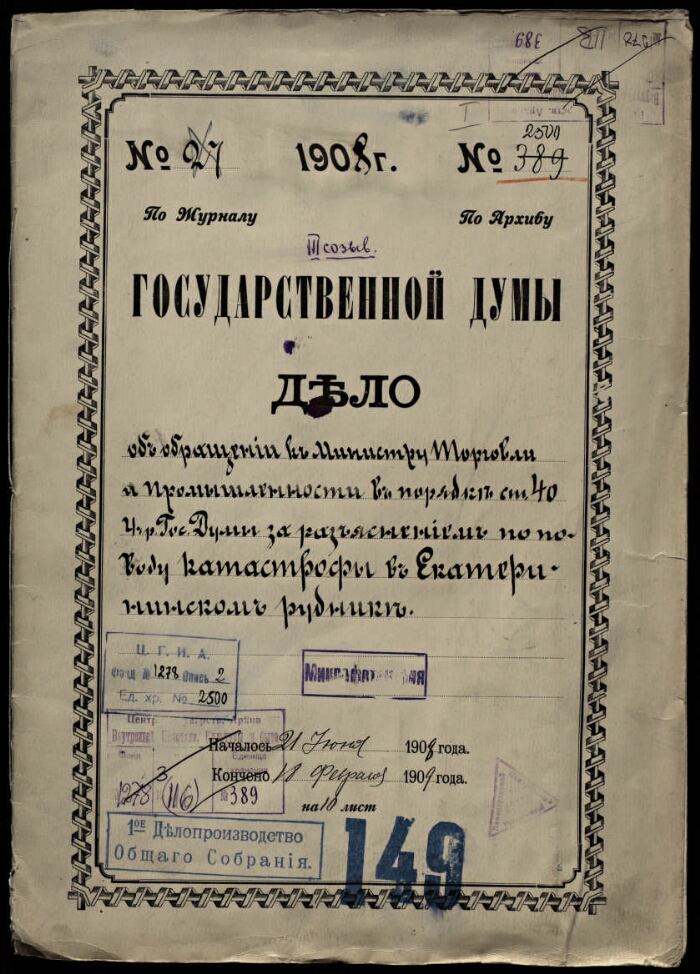 389
№ 27 1908 г. № 389
2500
По Журналу По Архиву
III созыв.
ГОСУДАРСТВЕННОЙ ДУМЫ
ДѢЛО
объ обращеніи къ Министру Торговли
и Промышленности въ порядкѣ ст. 40
Учр. Гос. Думы за разъясненіемъ по по-
воду катастрофы въ Екатери-
нинскомъ рудникѣ.
Ц. Г. И. А.
Фонд № 1278 Опись 2
Ед. хр. № 2500
Началось 21 Іюня 1908 года.
Кончено 18 Февраля 1909 года.
1278 (116) № 389
на 10 лист
1ое Дѣлопроизводство
Общаго Собранія.
149